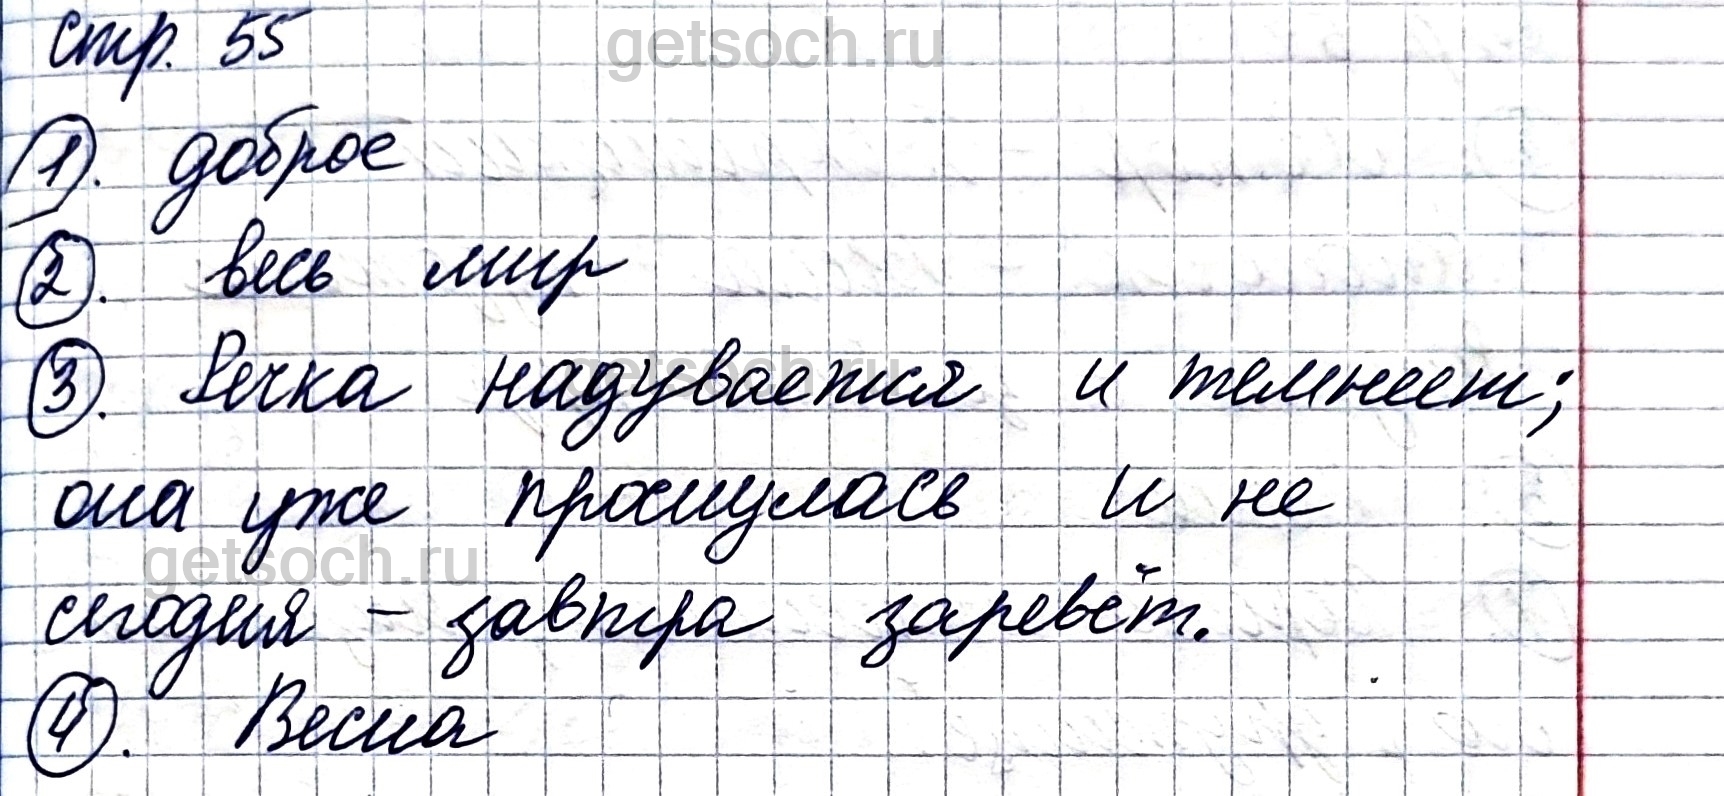 стр. 55
getsoch.ru
1). доброе
2). весь мир
3). Речка надувается и темнеет;
getsoch.ru
она уже проснулась и не
getsoch.ru
сегодня – завтра заревёт.
4). Весна